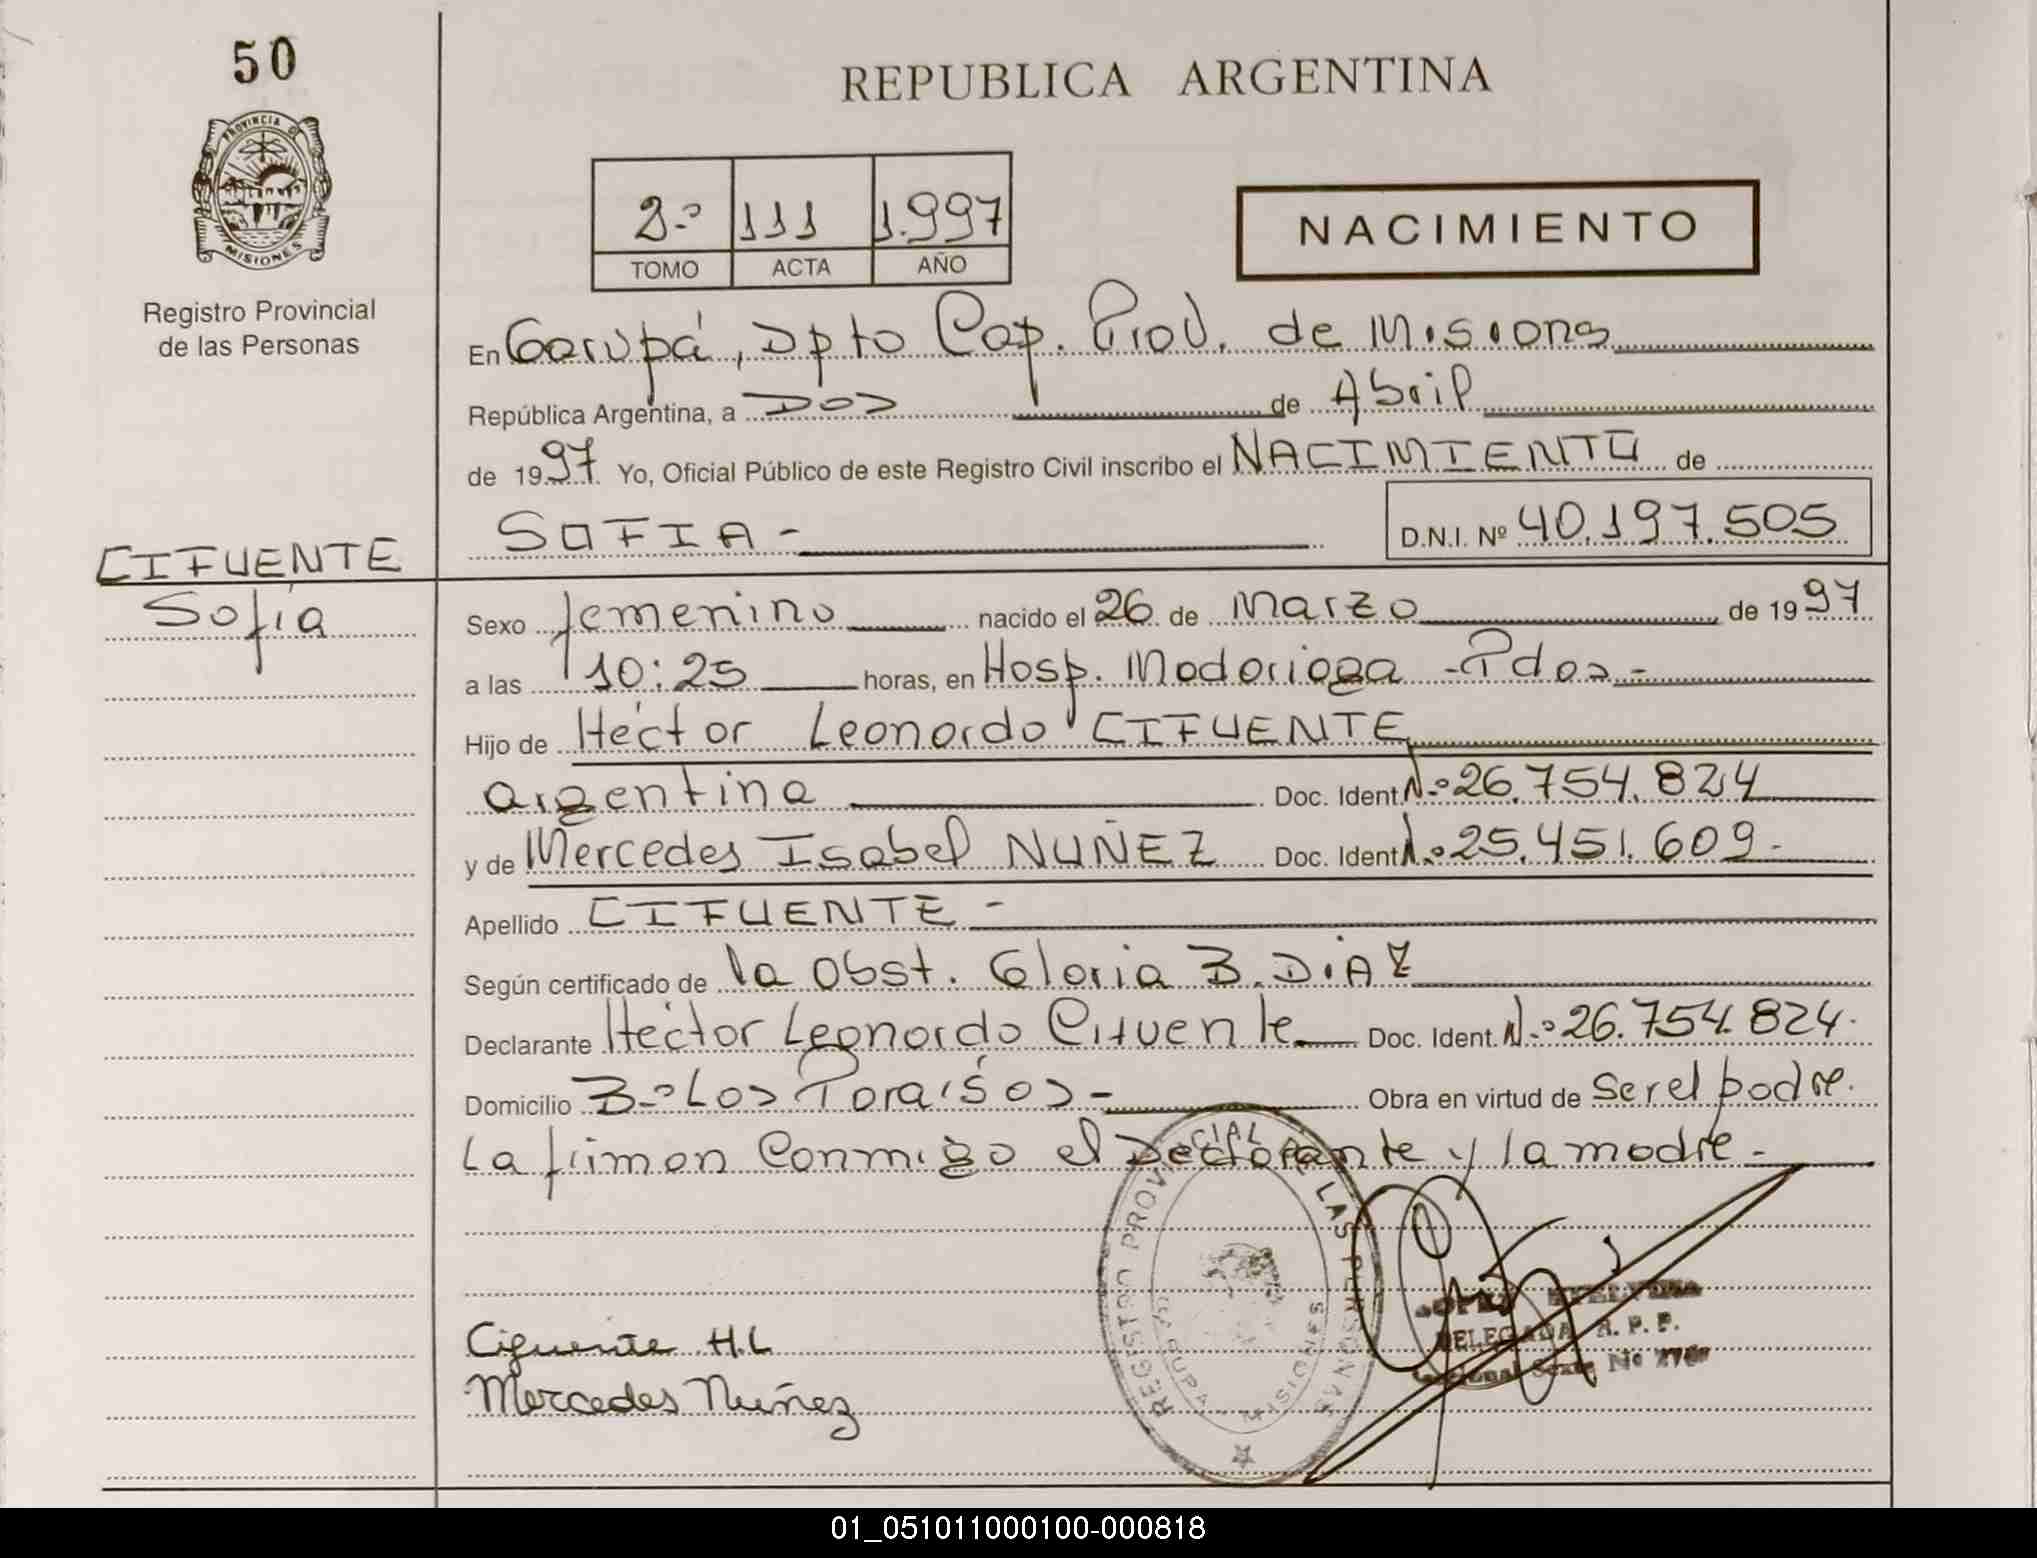 50
PROVINCIA D
MISIONES
Registro Provincial
de las Personas
REPUBLICA ARGENTINA
2.º 111 1.997
TOMO ACTA AÑO
NACIMIENTO
En Garupá, Dpto Cap. Prov. de Misiones
República Argentina, a Dos de Abril
de 1997 Yo, Oficial Público de este Registro Civil inscribo el NACIMIENTO de
SOFIA -
D.N.I. Nº 40.197.505
CIFUENTE
Sofía
Sexo femenino nacido el 26 de Marzo de 1997
a las 10:25 horas, en Hosp. Madariaga - Pdas -
Hijo de Héctor Leonardo CIFUENTE
argentina Doc. Ident. N.º 26.754.824
y de Mercedes Isabel NUÑEZ Doc. Ident. N.º 25.451.609.-
Apellido CIFUENTE -
Según certificado de la Obst. Gloria B. DIAZ
Declarante Héctor Leonardo Cifuente Doc. Ident. N.º 26.754.824.
Domicilio B.º Los Paraísos - Obra en virtud de ser el padre.
La firman conmigo el Declarante y la madre.-
REGISTRO PROVINCIAL DE LAS PERSONAS
GARUPA - MISIONES
DELEGADA R. P. P.
Cifuente H.L
Mercedes Nuñez
01_051011000100-000818